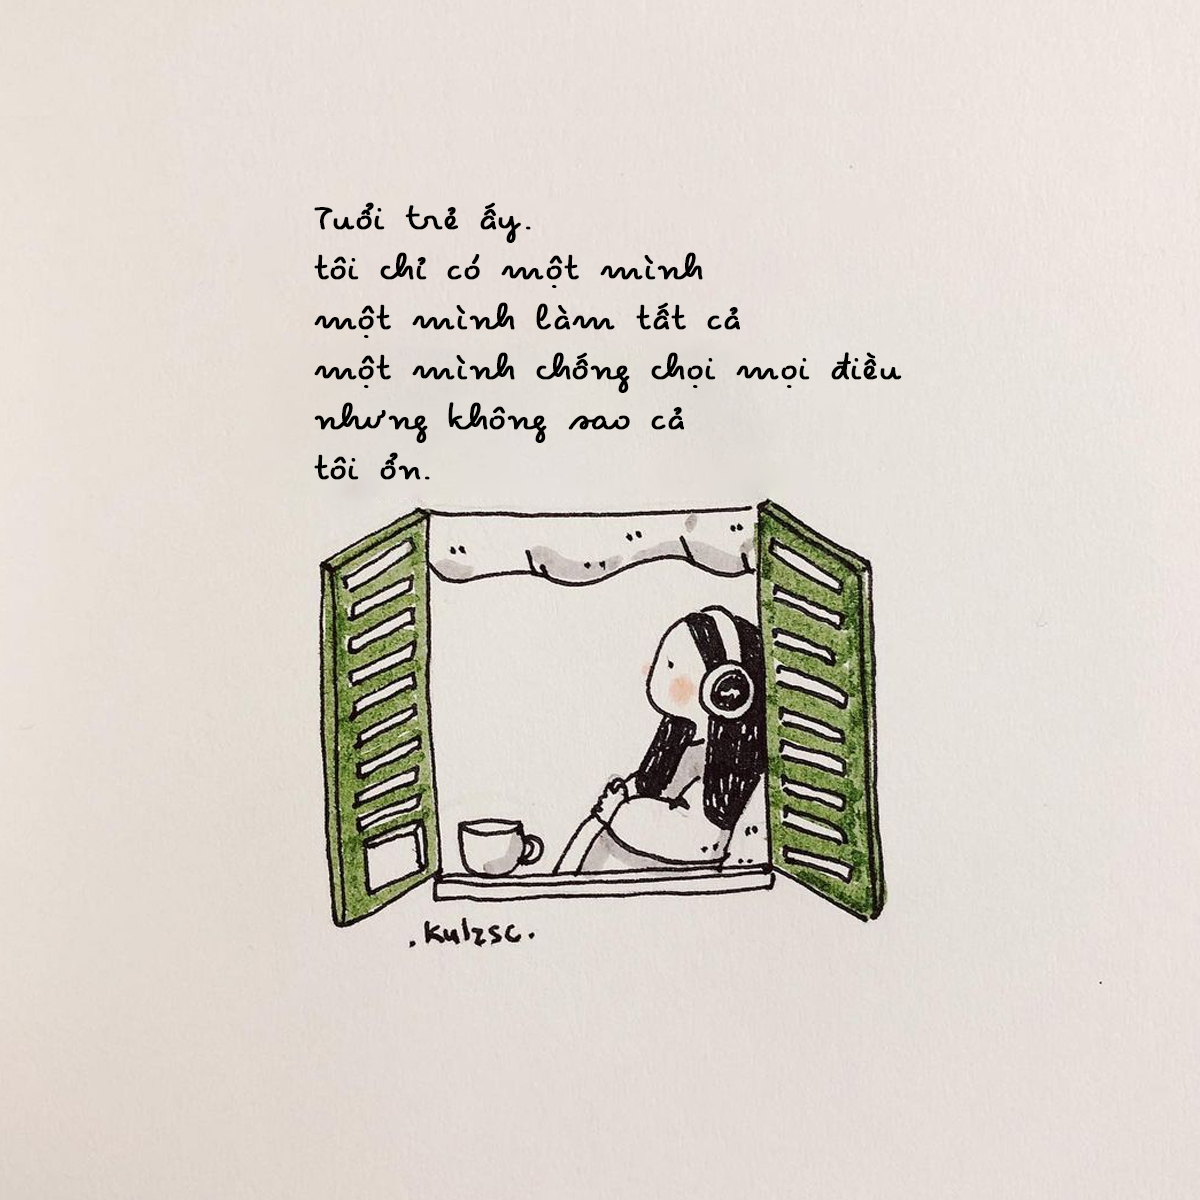 Tuổi trẻ ấy.
tôi chỉ có một mình
một mình làm tất cả
một mình chống chọi mọi điều
nhưng không sao cả
tôi ổn.
.kulzsc.